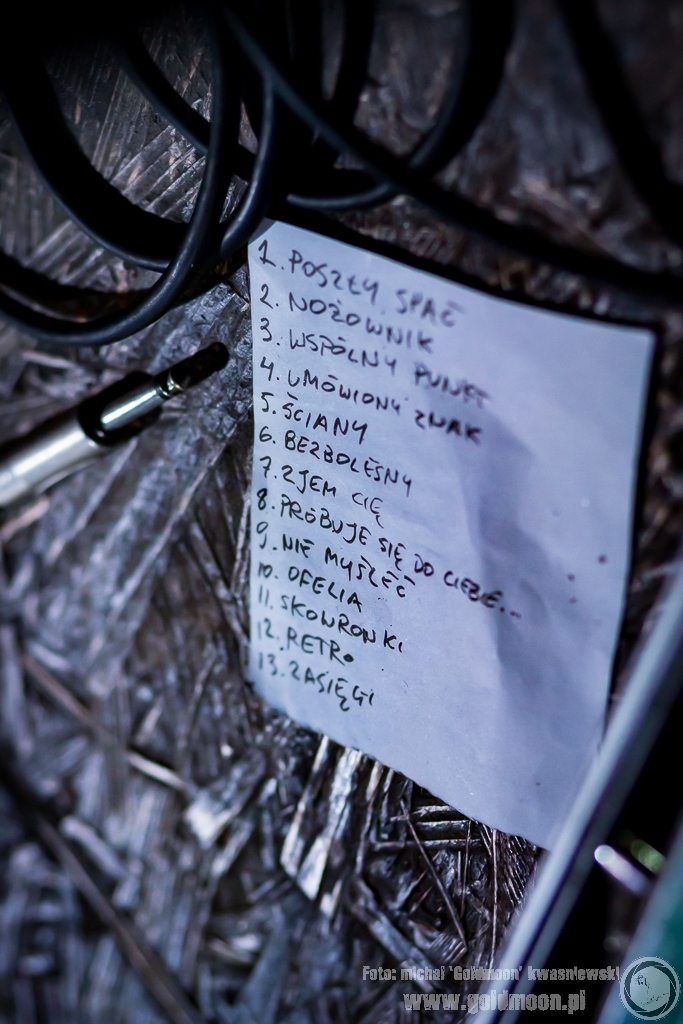 1. POSZŁY SPAĆ
2. NOŻOWNIK
3. WSPÓLNY PUNKT
4. UMÓWIONY ZNAK
5. ŚCIANY
6. BEZBOLEŚNY
7. ZJEM CIĘ
8. PRÓBUJE SIĘ DO CIEBIE...
9. NIE MYŚLEĆ
10. OFELIA
11. SKOWRONKI
12. RETRO
13. ZASIĘGI
Foto: michał 'Goldmoon' kwaśniewski
www.goldmoon.pl